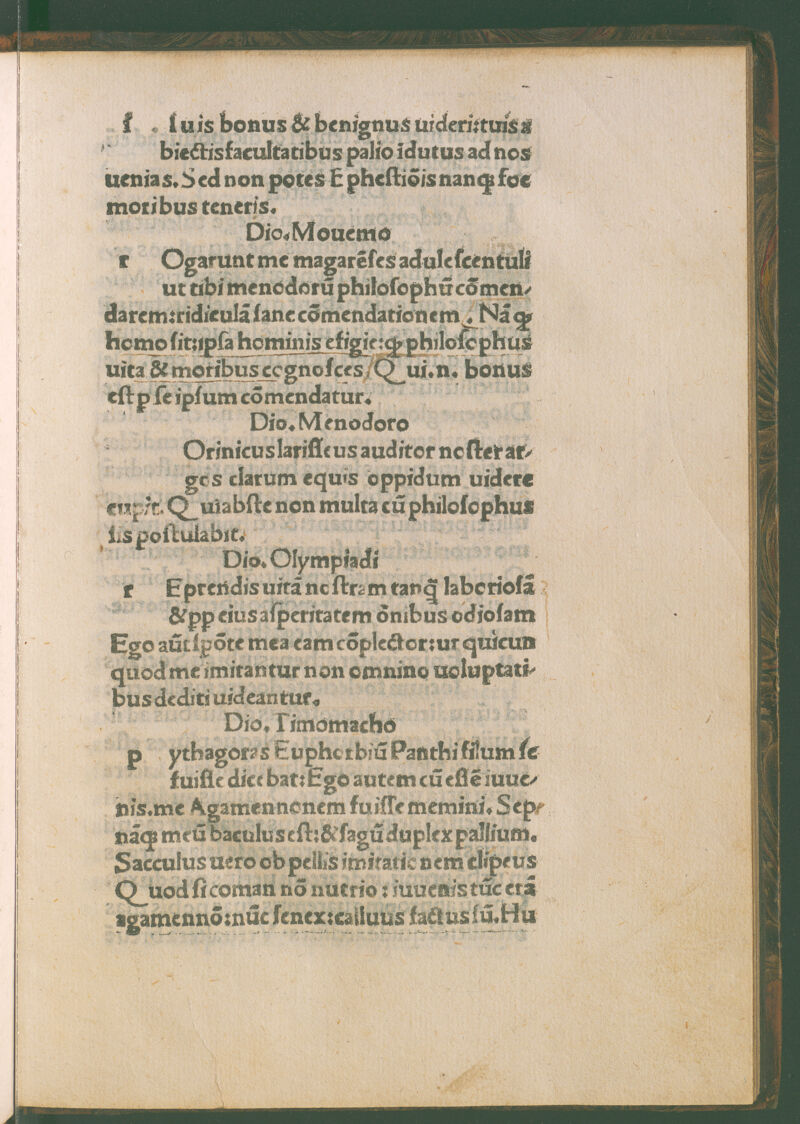 f . ſuis bonus & benignus uideri:tuis a
biectis facultatibus palio īdutus ad nos
uenias. Sed non potes Epheſtiōis nanꝙ foe
moribus teneris.
Dio. Mouemo
r Ogarunt me magarēſes aduleſcentuli
ut tibi menodorū philoſophū cōmen⸗
darem:ridiculā ſane cōmendationem . Nāꝙ
homo ſit:ipſa hominis efigie:ꝙ philoſophus
uita & moribus cognoſces/Qui.n. bonus
eſt p ſe ipſum cōmendatur.
Dio. Menodoro
Orinicus lariſſeus auditor noſter ar⸗
gos clarum equis oppidum uidere
cupit. Qui abſte non multa cū philoſophus
ſis poſtulabit.
Dio. Olympiadi
r Eprendis uitā noſtram tanq̄ laborioſā
& pp eius aſperitatem ōnibus odioſam
Ego aūt ſpōte mea eam cōplector:ut quicun
quod me imitantur non omnino uoluptati⸗
bus dediti uideantur.
Dio. Timomacho
p ythagoras Euphorbiū Panthi filum ſe
fuiſſe dicebat:Ego autem cū eſſē iuue⸗
nis.me Agamennonem fuiſſe memini. Sep⸗
nāꝙ meū baculus eſt:& ſagū duplex pallium.
Sacculus uero ob pellis imitationem clipeus
Quod ſi coman nō nutrio : iuuenis tūc erā
agamennō:nūc ſenex:calluus factus ſū. Hu